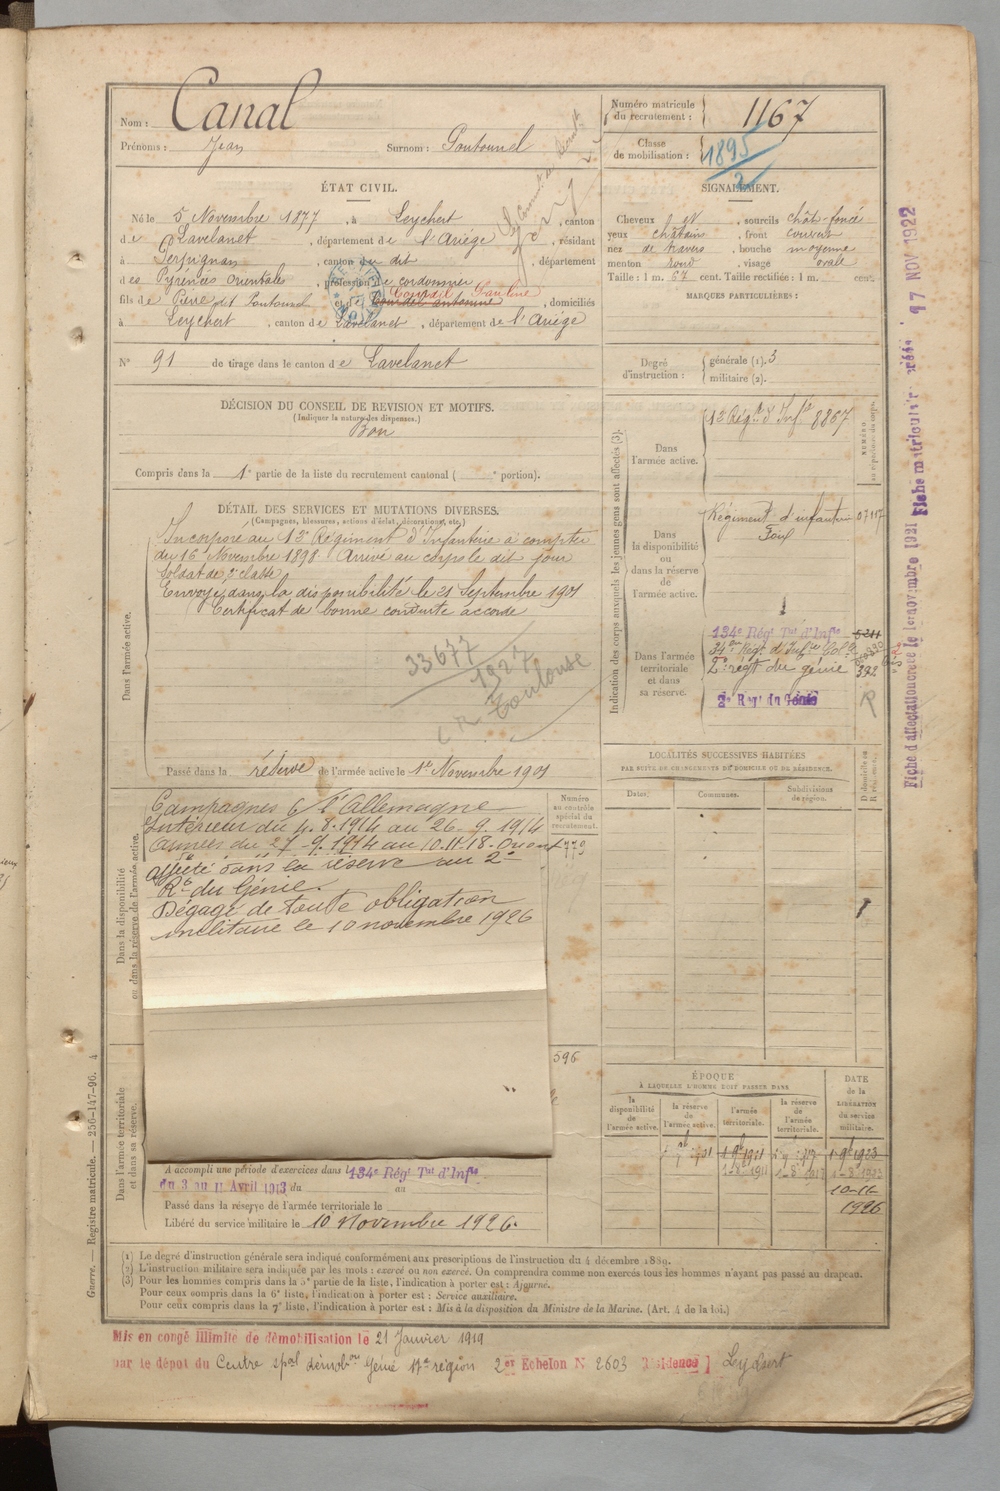 Nom : Canal
Prénoms : Jean Surnom : Poutounel
Numéro matricule du recrutement : 1167
Classe de mobilisation : 1895 / 2
ÉTAT CIVIL.
Né le 5 Novembre 1877, à Leychert, canton
de Lavelanet, département de l'Ariège, résidant
à Perpignan, canton du dit, département
des Pyrénées Orientales, profession de cordonnier
fils de Pierre dit Poutounel et de Courdil Pauline, domiciliés
à Leychert, canton de Lavelanet, département de l'Ariège
N° 91 de tirage dans le canton de Lavelanet
SIGNALEMENT.
Cheveux, sourcils chât-foncé
yeux châtains, front couvert
nez de travers, bouche moyenne
menton rond, visage ovale
Taille : 1 m. 67 cent. Taille rectifiée : 1 m. cent.
MARQUES PARTICULIÈRES :
Degré d'instruction : générale (1). 3
militaire (2).
DÉCISION DU CONSEIL DE REVISION ET MOTIFS.
(Indiquer la nature des dispenses.)
Bon
Compris dans la 1e partie de la liste du recrutement cantonal ( e portion).
DÉTAIL DES SERVICES ET MUTATIONS DIVERSES.
(Campagnes, blessures, actions d'éclat, décorations, etc.)
Dans l'armée active.
Incorporé au 12e Régiment d'Infanterie à compter
du 16 Novembre 1898 Arrivé au corps le dit jour
Soldat de 2e classe
Envoyé dans la disponibilité le 21 Septembre 1901
Certificat de bonne conduite accordé
33677
1927
CR Toulouse
Passé dans la réserve de l'armée active le 1er Novembre 1901
Indication des corps auxquels les jeunes gens sont affectés (3).
NUMÉRO au répertoire du corps.
Dans l'armée active.
12e Régt d'Infie 8867
Dans la disponibilité ou dans la réserve de l'armée active.
Régiment d'infanterie 07117
Foix
Dans l'armée territoriale et dans sa réserve.
134e Régt Tal d'Infie 5211
2e régt du génie 392
2e Régt du Génie
R
LOCALITÉS SUCCESSIVES HABITÉES
PAR SUITE DE CHANGEMENTS DE DOMICILE OU DE RÉSIDENCE.
Dates. Communes. Subdivisions de région. D domicile ou R résidence.
Dans la disponibilité ou dans la réserve de l'armée active.
Numéro au contrôle spécial du recrutement.
Campagnes c/ l'Allemagne
Intérieur du 4.8.1914 au 26-9.1914
Armées du 27-9.1914 au 10.11.18 - Orient
779
affecté dans la réserve au 2e
Rt du Génie.
Dégagé de toute obligation
militaire le 10 novembre 1926
596
Dans l'armée territoriale et dans sa réserve.
A accompli une période d'exercices dans l 134e Régt Tal d'Infie
du 3 au 11 Avril 1913 du au
Passé dans la réserve de l'armée territoriale le
Libéré du service militaire le 10 Novembre 1926.
ÉPOQUE
À LAQUELLE L'HOMME DOIT PASSER DANS
la disponibilité de l'armée active. la réserve de l'armée active. l'armée territoriale. la réserve de l'armée territoriale. DATE de la LIBÉRATION du service militaire.
10-11-
1926
(1) Le degré d'instruction générale sera indiqué conformément aux prescriptions de l'instruction du 4 décembre 1889.
(2) L'instruction militaire sera indiquée par les mots : exercé ou non exercé. On comprendra comme non exercés tous les hommes n'ayant pas passé au drapeau.
(3) Pour les hommes compris dans la 5e partie de la liste, l'indication à porter est : Ajourné.
Pour ceux compris dans la 6e liste, l'indication à porter est : Service auxiliaire.
Pour ceux compris dans la 7e liste, l'indication à porter est : Mis à la disposition du Ministre de la Marine. (Art. 4 de la loi.)
Mis en congé illimité de démobilisation le 21 Janvier 1919
par le dépôt du Centre spal démobon Génie 17e région 2er Echelon N° 2603 Résidence Leychert
Guerre. — Registre matricule. — 256-147-96. 4
Fiche d'affectation créée le 1er novembre 1921
Fiche matriculaire créée 17 NOV 1922